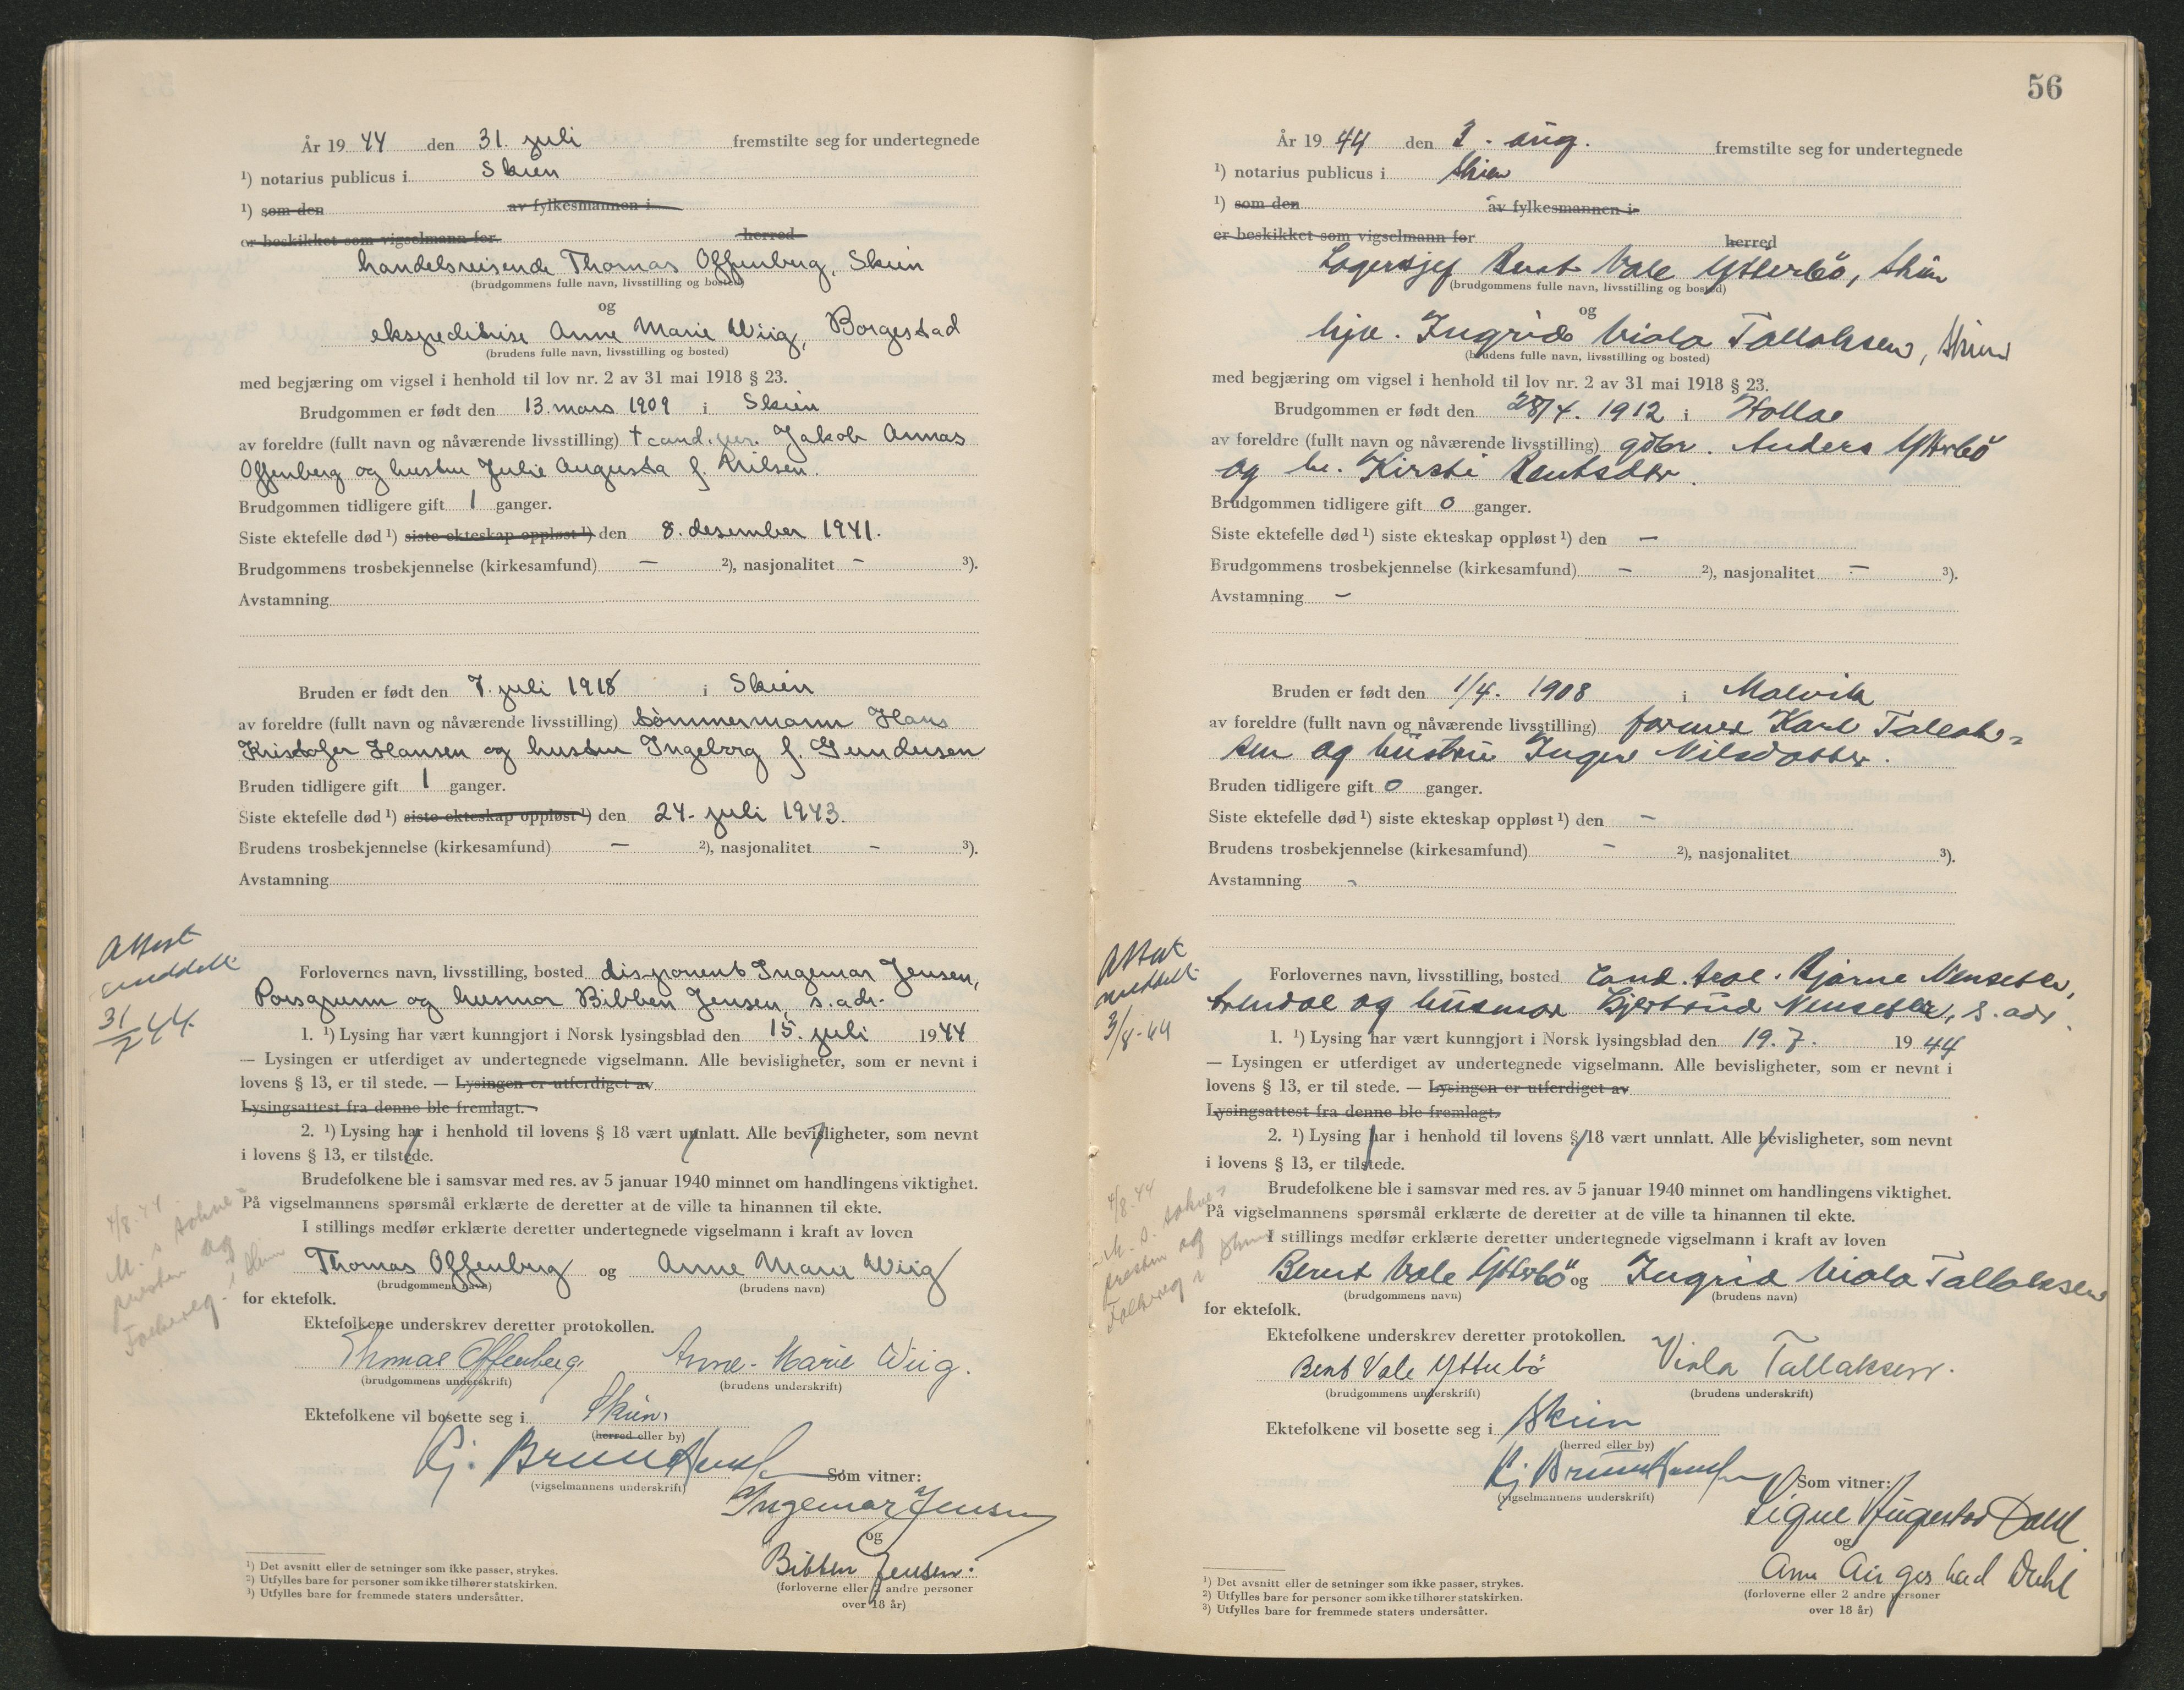 År 19 44 den 31. juli fremstilte seg for undertegnede
¹) notarius publicus i Skien
¹) som den av fylkesmannen i
er beskikket som vigselmann for herred
handelsreisende Thomas Offenberg, Skien
(brudgommens fulle navn, livsstilling og bosted)
og
ekspeditrise Anne Marie Wiig, Borgestad
(brudens fulle navn, livsstilling og bosted)
med begjæring om vigsel i henhold til lov nr. 2 av 31 mai 1918 § 23.
Brudgommen er født den 13. mars 1909 i Skien
av foreldre (fullt navn og nåværende livsstilling) † cand. jur. Jakob Annas
Offenberg og hustru Julie Augusta f. Nilsen.
Brudgommen tidligere gift 1 ganger.
Siste ektefelle død ¹) siste ekteskap oppløst ¹) den 8. desember 1941.
Brudgommens trosbekjennelse (kirkesamfund) — ²), nasjonalitet — ³).
Avstamning
Bruden er født den 7. juli 1918 i Skien
av foreldre (fullt navn og nåværende livsstilling) tömmermann Hans
Kristofer Hansen og hustru Ingeborg f. Gundersen
Bruden tidligere gift 1 ganger.
Siste ektefelle død ¹) siste ekteskap oppløst ¹) den 24. juli 1943.
Brudens trosbekjennelse (kirkesamfund) — ²), nasjonalitet — ³).
Avstamning
Attest
meddelt
31/7 44.
Forlovernes navn, livsstilling, bosted disponent Ingemar Jensen,
Porsgrunn og husmor Bibben Jensen, s. adr.
1. ¹) Lysing har vært kunngjort i Norsk lysingsblad den 15. juli 1944
— Lysingen er utferdiget av undertegnede vigselmann. Alle bevisligheter, som er nevnt i
lovens § 13, er til stede. — Lysingen er utferdiget av
Lysingsattest fra denne ble fremlagt.
2. ¹) Lysing har i henhold til lovens § 18 vært unnlatt. Alle bevisligheter, som nevnt
i lovens § 13, er tilstede.
Brudefolkene ble i samsvar med res. av 5 januar 1940 minnet om handlingens viktighet.
På vigselmannens spørsmål erklærte de deretter at de ville ta hinannen til ekte.
I stillings medfør erklærte deretter undertegnede vigselmann i kraft av loven
4/8-44
M. s. sokne-
presten og
Folkereg. i Skien
Thomas Offenberg og Anne Marie Wiig
(brudgommens navn) (brudens navn)
for ektefolk.
Ektefolkene underskrev deretter protokollen.
Thomas Offenberg Anne-Marie Wiig.
(brudgommens underskrift) (brudens underskrift)
Ektefolkene vil bosette seg i Skien
(herred eller by)
Kj. Bruun
(vigselmannens underskrift)
Som vitner:
Ingemar Jensen
og
Bibben Jensen.
(forloverne eller 2 andre personer
over 18 år)
¹) Det avsnitt eller de setninger som ikke passer, strykes.
²) Utfylles bare for personer som ikke tilhører statskirken.
³) Utfylles bare for fremmede staters undersåtter.
56
År 19 44 den 3. aug. fremstilte seg for undertegnede
¹) notarius publicus i Skien
¹) som den av fylkesmannen i
er beskikket som vigselmann for herred
Lagersjef Bent Vale Ytterbö, Skien
(brudgommens fulle navn, livsstilling og bosted)
og
hjv. Ingrid Viola Tallaksen, Skien
(brudens fulle navn, livsstilling og bosted)
med begjæring om vigsel i henhold til lov nr. 2 av 31 mai 1918 § 23.
Brudgommen er født den 28/4. 1912 i Holla
av foreldre (fullt navn og nåværende livsstilling) gdbr. Anders Ytterbö
og hu. Kirsti Bentsdtr.
Brudgommen tidligere gift 0 ganger.
Siste ektefelle død ¹) siste ekteskap oppløst ¹) den —
Brudgommens trosbekjennelse (kirkesamfund) — ²), nasjonalitet — ³).
Avstamning —
Bruden er født den 1/4. 1908 i Malvik
av foreldre (fullt navn og nåværende livsstilling) former Karl Tallak-
sen og hustru Inger Nilsdatter.
Bruden tidligere gift 0 ganger.
Siste ektefelle død ¹) siste ekteskap oppløst ¹) den —
Brudens trosbekjennelse (kirkesamfund) — ²), nasjonalitet ³).
Avstamning -
Attest
meddelt
3/8-44
Forlovernes navn, livsstilling, bosted Cand. Bjarne Nenseter,
og husmor Gjertrud Nenseter, s. adr.
1. ¹) Lysing har vært kunngjort i Norsk lysingsblad den 19. 7. 19 44
— Lysingen er utferdiget av undertegnede vigselmann. Alle bevisligheter, som er nevnt i
lovens § 13, er til stede. — Lysingen er utferdiget av
Lysingsattest fra denne ble fremlagt.
2. ¹) Lysing har i henhold til lovens § 18 vært unnlatt. Alle bevisligheter, som nevnt
i lovens § 13, er tilstede.
Brudefolkene ble i samsvar med res. av 5 januar 1940 minnet om handlingens viktighet.
På vigselmannens spørsmål erklærte de deretter at de ville ta hinannen til ekte.
I stillings medfør erklærte deretter undertegnede vigselmann i kraft av loven
4/8-44
M. s. sokne-
presten og
Folkereg i Skien
Bernt Vale Ytterbö og Ingrid Viola Tallaksen
(brudgommens navn) (brudens navn)
for ektefolk.
Ektefolkene underskrev deretter protokollen.
Bent Vale Ytterbö Viola Tallaksen.
(brudgommens underskrift) (brudens underskrift)
Ektefolkene vil bosette seg i Skien
(herred eller by)
Kj Bruun
(vigselmannens underskrift)
Som vitner:
Signe Augestad Dahl
og
Anne Augestad Dahl
(forloverne eller 2 andre personer
over 18 år)
¹) Det avsnitt eller de setninger som ikke passer, strykes.
²) Utfylles bare for personer som ikke tilhører statskirken.
³) Utfylles bare for fremmede staters undersåtter.